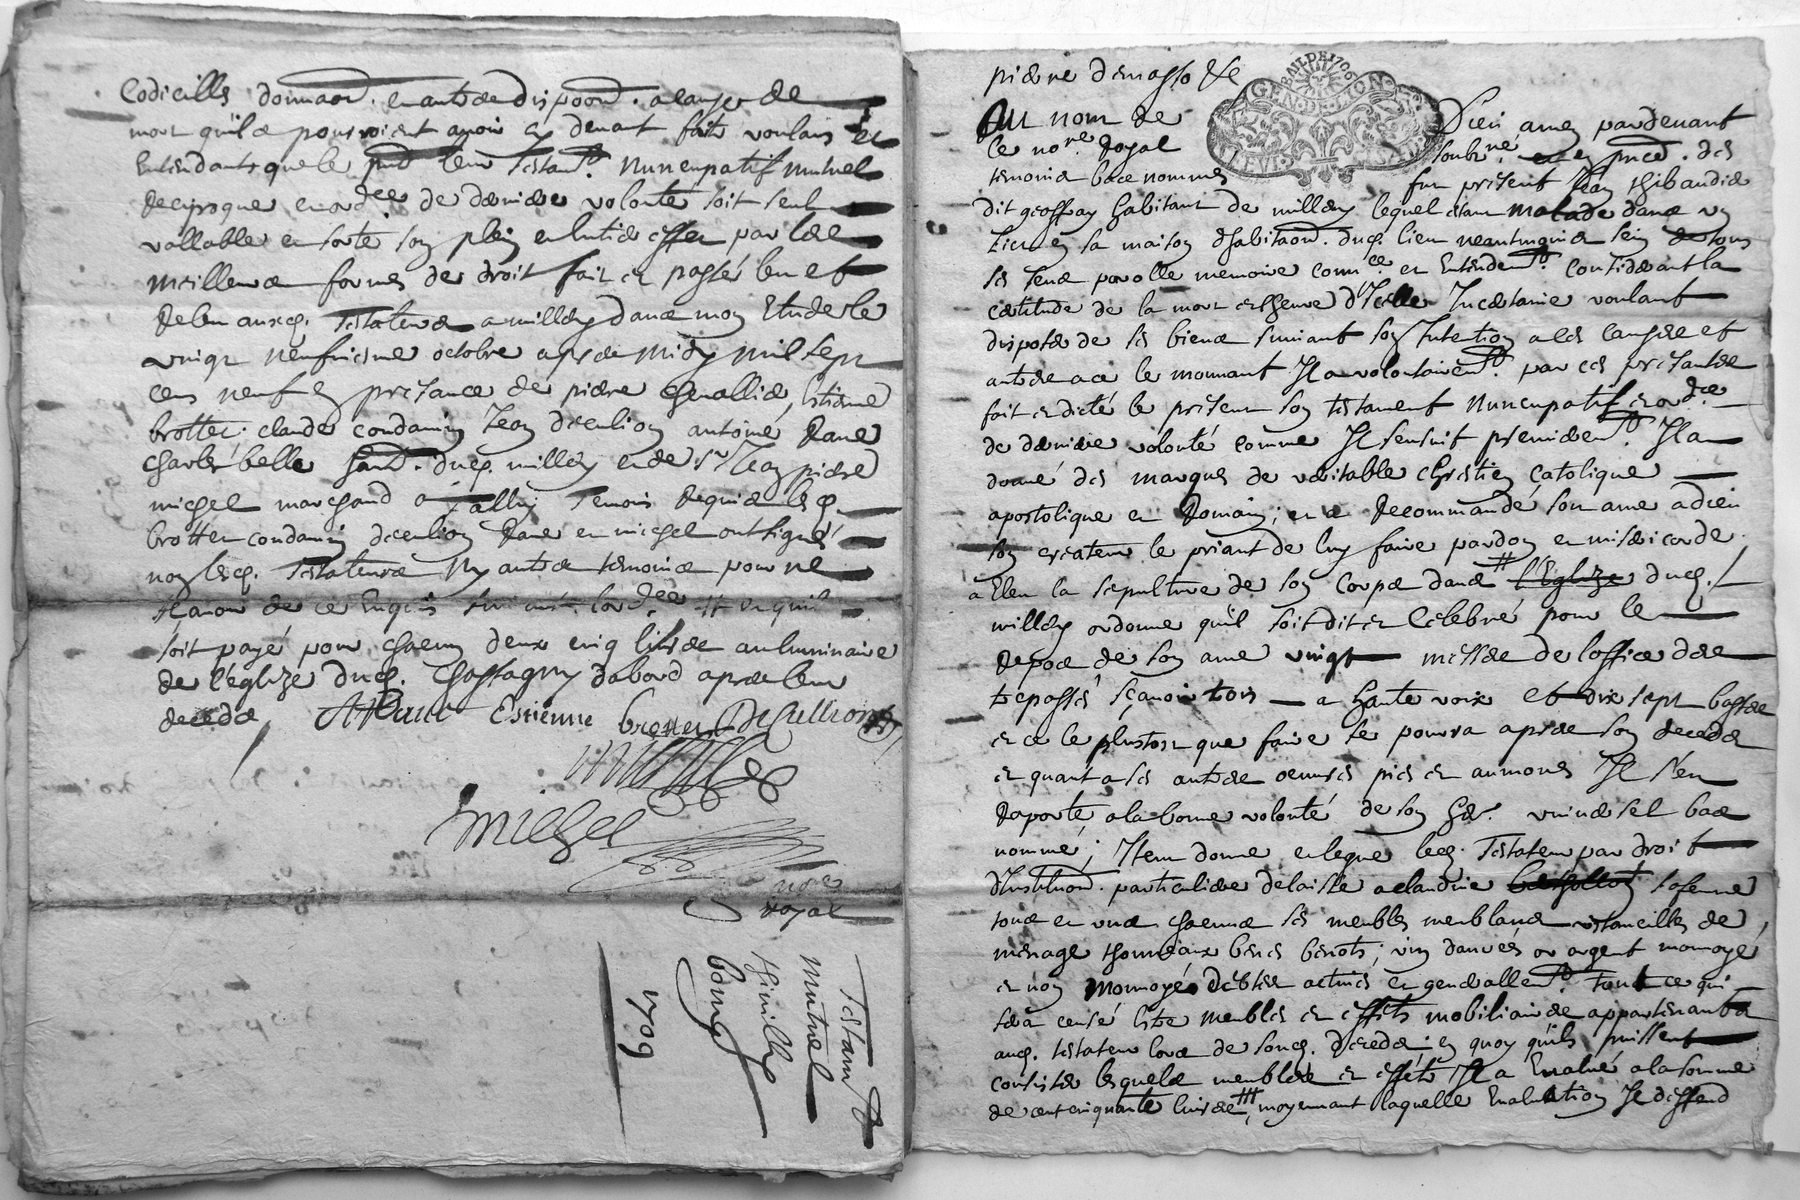 Codicilles donnaon. et autre dispoon. a cause de
mort quils pourroient avoir cy devant fait voulans et
Entendants que le pnt leur testamt. Nuncupatif mutuel
Reciproque et ordce de derniere volonté soit seul
vallable et sorte son plein et entier effet par les
meilleures formes de droit fait et passé leu et
Releu auxd. testateurs a millery dans mon Etude le
vingt neufviesme octobre apres midy mil sept
cens neuf en presance de pierre Chevallier, Estienne
brottet, claude condamin Jean decullion antoine Rave
Charles belle habt. dud. millery et de sr Jean pierre
michel marchand a Tallin temoins Requis lesd.
brottet condamin decullion Rave et michel ont signé
non lesd. testateurs Ny autres temoins pour ne
sçavoir de ce Enquis suivant lordce # et quil
soit payé pour chacun deux cinq livres au luminaire
de l'eglize dud. Chassagny dabord apres leur
decedz
ARave Estienne brottet Decullion
michel
nore
royal
Testamt
mutuel
1709
pierre demasso &c
BAIL DE 1706
GEN. DE LYON
Au nom de Dieu amen pardevant
le nore Royal soubne. et en pnce. des
temoins bas nommes fut present Jean thibaudier
dit geoffray habitant de millery lequel estant malade dans un
lict en sa maison dhabitaon. dud. lieu neantmoins sein de tous
ses sens parolle memoire connce. et Entendemt. Considerant la
certitude de la mort et lheure d'Icelle Incertaine voulant
disposer de ses biens suivant son Intention a des causes et
autres a ce le mouvant Il a volontairemt. par ces presantes
fait et dicté le present son testament Nuncupatif et ordce
de derniere volonté comme Il sensuit premieremt. Il a
donné des marques de veritable chrestien Catolique
apostolique et Romain; et a Recommandé son ame a dieu
son createur le priant de luy faire pardon et misericorde
a Eleu la sepulture de son Corps dans # l'Eglize dud.
millery ordonne quil soit dit et Celebré pour le
Repos de son ame vingt messes de loffice des
trepassés sçavoir trois a haute voix et dix sept basses
et ce le plustost que faire se pourra apres son decedz
et quant a ses autres oeuvres pies et aumones Il s'en
Raporte a la bonne volonté de son her. universel bas
nommé; Item donne et legue led. Testateur par droit
d'Instituon. particuliere delaisse a claudine sa femme
tous et uns chacuns ses meubles meublans ustancilles de
menage thonneaux benes benots; vin danrées or argent monnoyé
et non monnoyé debtes actives et generallemt. tout ce qui
sera censé litre meubles et effets mobiliaires appartenants
aud. testateur lors de sond. decedz en quoy quils puissent
consister lesquels meubles et effets Il a Evalué a la somme
de cent cinquante livres ### moyennant laquelle Evaluation Il deffend